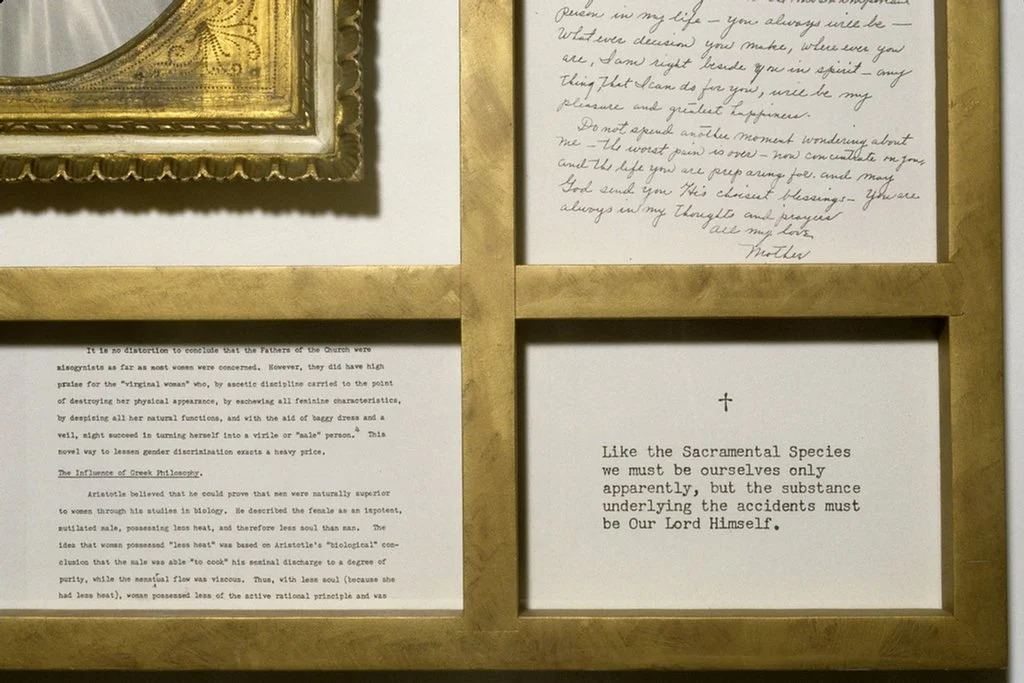 person in my life – you always will be –
What ever decision you make, where ever you
are, I am right beside you in spirit – any
thing that I can do for you, will be my
pleasure and greatest happiness.
Do not spend another moment wondering about
me – the worst pain is over – now concentrate on you,
and the life you are preparing for. and may
God send you His choisest blessings – You are
always in my thoughts and prayers
All my love,
Mother
It is no distortion to conclude that the Fathers of the Church were
misogynists as far as most women were concerned. However, they did have high
praise for the "virginal woman" who, by ascetic discipline carried to the point
of destroying her physical appearance, by eschewing all feminine characteristics,
by despising all her natural functions, and with the aid of baggy dress and a
veil, might succeed in turning herself into a virile or "male" person.4 This
novel way to lessen gender discrimination exacts a heavy price.
The Influence of Greek Philosophy.
Aristotle believed that he could prove that men were naturally superior
to women through his studies in biology. He described the female as an impotent,
mutilated male, possessing less heat, and therefore less soul than man. The
idea that woman possessed "less heat" was based on Aristotle's "biological" con-
clusion that the male was able "to cook" his seminal discharge to a degree of
purity, while the menstrual flow was viscous. Thus, with less soul (because she
had less heat), woman possessed less of the active rational principle and was
Like the Sacramental Species
we must be ourselves only
apparently, but the substance
underlying the accidents must
be Our Lord Himself.